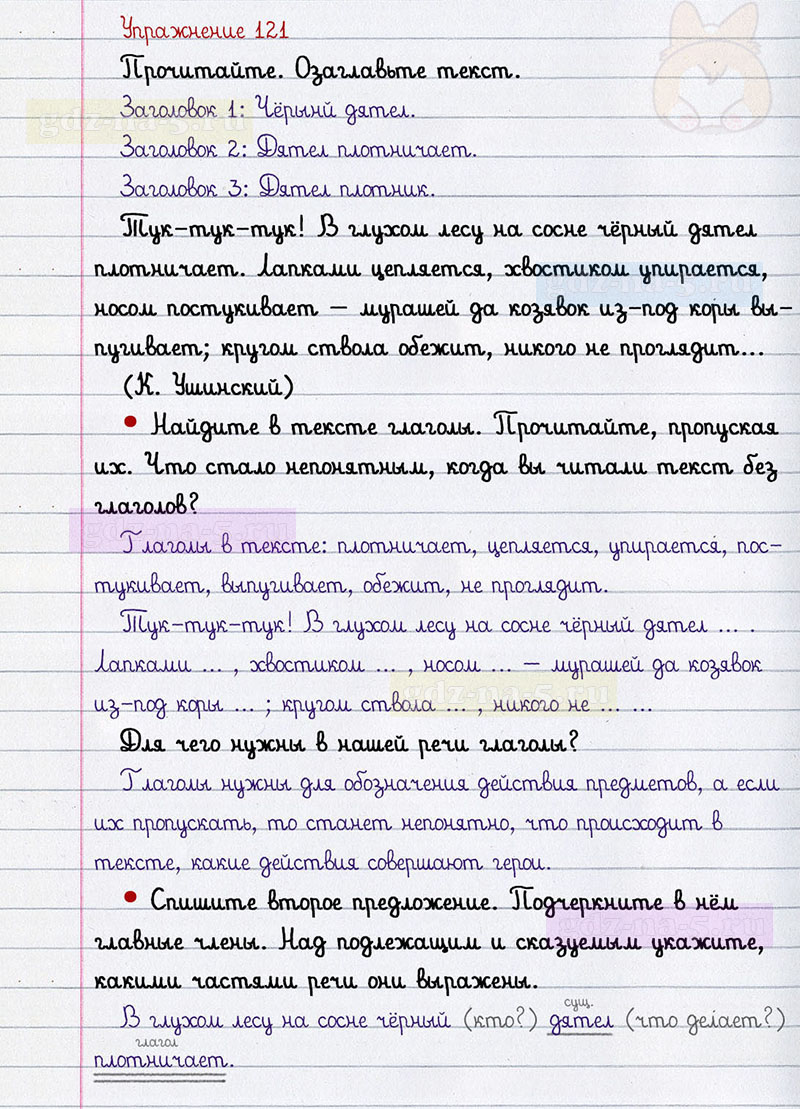 Упражнение 121
Прочитайте. Озаглавьте текст.
Заголовок 1: Чёрынй дятел.
gdz-na-5.ru
Заголовок 2: Дятел плотничает.
Заголовок 3: Дятел плотник.
Тук-тук-тук! В глухом лесу на сосне чёрный дятел
плотничает. Лапками цепляется, хвостиком упирается,
gdz-na-5.ru
носом постукивает – мурашей да козявок из-под коры вы-
пугивает; кругом ствола обежит, никого не проглядит...
(К. Ушинский)
• Найдите в тексте глаголы. Прочитайте, пропуская
их. Что стало непонятным, когда вы читали текст без
глаголов?
gdz-na-5.ru
Глаголы в тексте: плотничает, цепляется, упирается, пос-
тукивает, выпугивает, обежит, не проглядит.
Тук-тук-тук! В глухом лесу на сосне чёрный дятел ... .
Лапками ... , хвостиком ... , носом ... – мурашей да козявок
gdz-na-5.ru
из-под коры ... ; кругом ствола ... , никого не ... ...
Для чего нужны в нашей речи глаголы?
Глаголы нужны для обозначения действия предметов, а если
их пропускать, то станет непонятно, что происходит в
тексте, какие действия совершают герои.
• Спишите второе предложение. Подчеркните в нём
gdz-na-5.ru
главные члены. Над подлежащим и сказуемым укажите,
какими частями речи они выражены.
сущ.
В глухом лесу на сосне чёрный (кто?) дятел (что делает?)
глагол
плотничает.